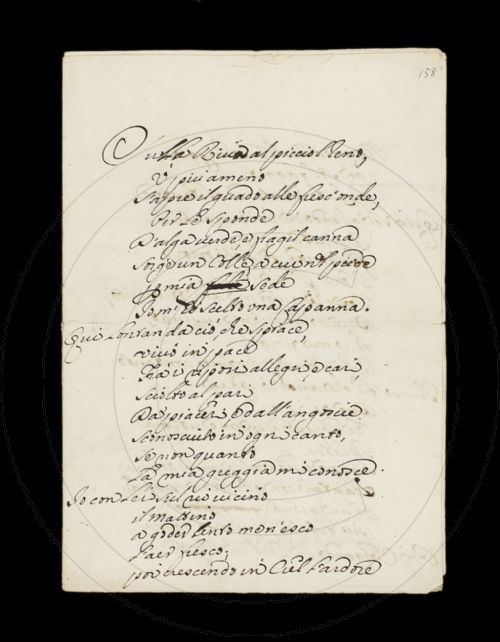 158
Sulla Riva al piccio Reno,
V' più ameno
S'apre il guado alle fresc'onde,
Per le sponde
D'alga verde e fragil canna
Sorge un Colle a cui nel piede
Io mia sede
Io m'ho scelto una Capanna.
Qui lontan da ciò, che spiace,
vivo in pace
Fra i riposi allegri, e cari,
sciolto al pari
Da piaceri, e dall'angoscie.
Sconosciuto in ogni canto,
Se non quanto
La mia greggia mi conosce.
Io con lei sul rio vicino
il mattino
a goder lento men'esco
L'aer fresco;
poi crescendo in Ciel l'ardore